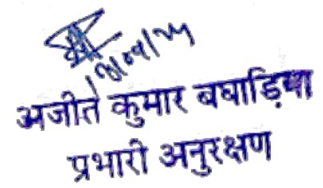 अजीत कुमार बघाड़िया
प्रभारी अनुरक्षण